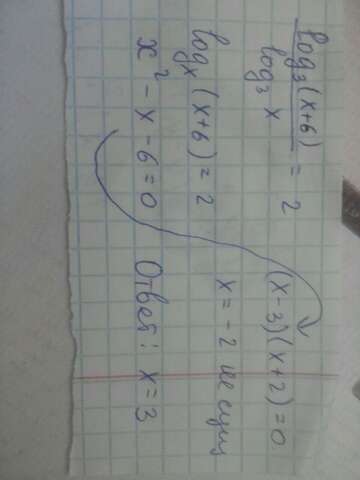 log₃(x+6) / log₃ x = 2
logₓ(x+6) = 2
x² - x - 6 = 0
(x-3)(x+2) = 0
x = -2 не сущ
Ответ: x = 3